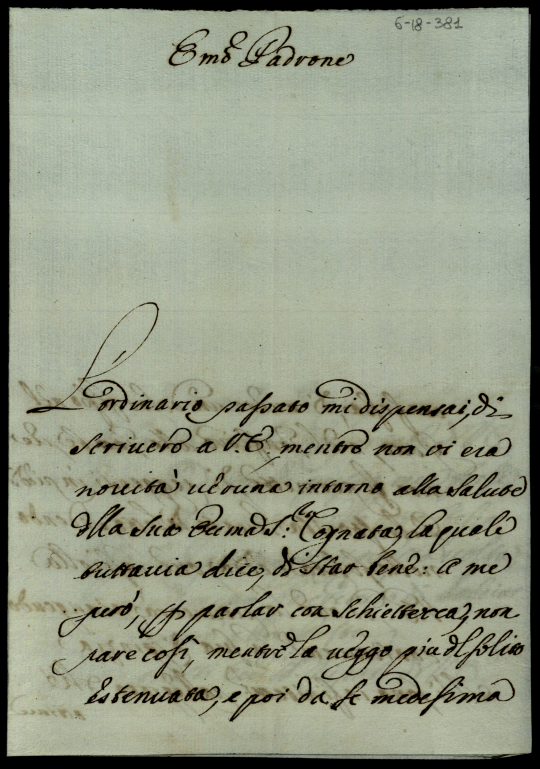 6-18-381
Emõ Padrone
L'ordinario passato mi dispensai, di
scrivere a V.E. mentre non vi era
novità veruna intorno alla salute
dlla sua Ecc.ma Sig.ra Cognata, la quale
tuttavia dice, di star bene: a me
però, p parlar con schiettezza, non
pare così, mentre la veggo più dl solito
estenuata, e poi da se medesima